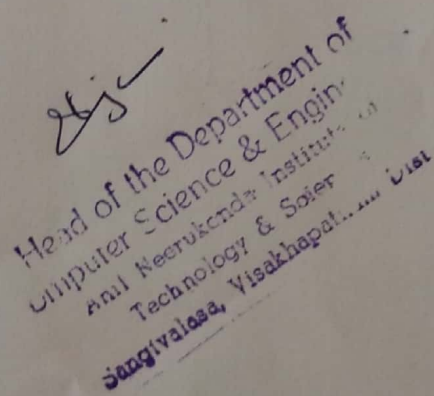 Head of the Department of
Computer Science & Engin
Anil Neerukonda Institute of
Technology &
Sangivalasa, Visakhapat Dist